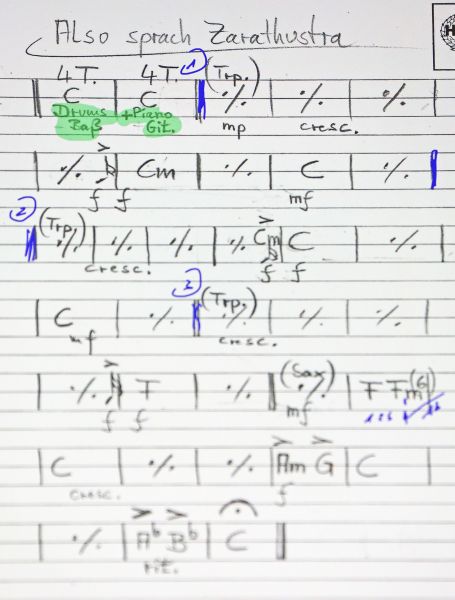 Also sprach Zarathustra
4 T. 4 T. 1 (Trp.)
C C % %
Drums + Piano
Baß Git. mp cresc.
% Cm % C %
f f mf
2 (Trp.)
% % % % Cm C %
cresc. f f
3 (Trp.)
C % % % %
mf cresc.
(Sax)
% F % % F Fm(6)
f f mf
C % % Am G C
cresc. f
% Ab Bb C
rit.